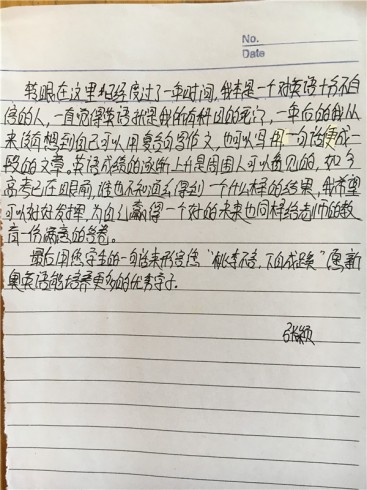 No.
Date
转眼在这里已经度过了一年时间,我本是一个对英语十分不自
信的人,一直觉得英语就是我所有科目的死穴,一年后的我从
来没有想到自己可以用复合句写作文,也可以写用一句话便成一
段的文章。英语成绩的逐渐上升是周围人可以看见的,如今
高考已在眼前,谁也不知道会得到一个什么样的结果,我希望
可以好好发挥,为自己赢得一个对的未来也同样给老师的教
育一份满意的答卷。
最后用您学生的一句话来形容您“桃李不言,下自成蹊”愿新
奥英语能培养更多的优秀学子.
张颖